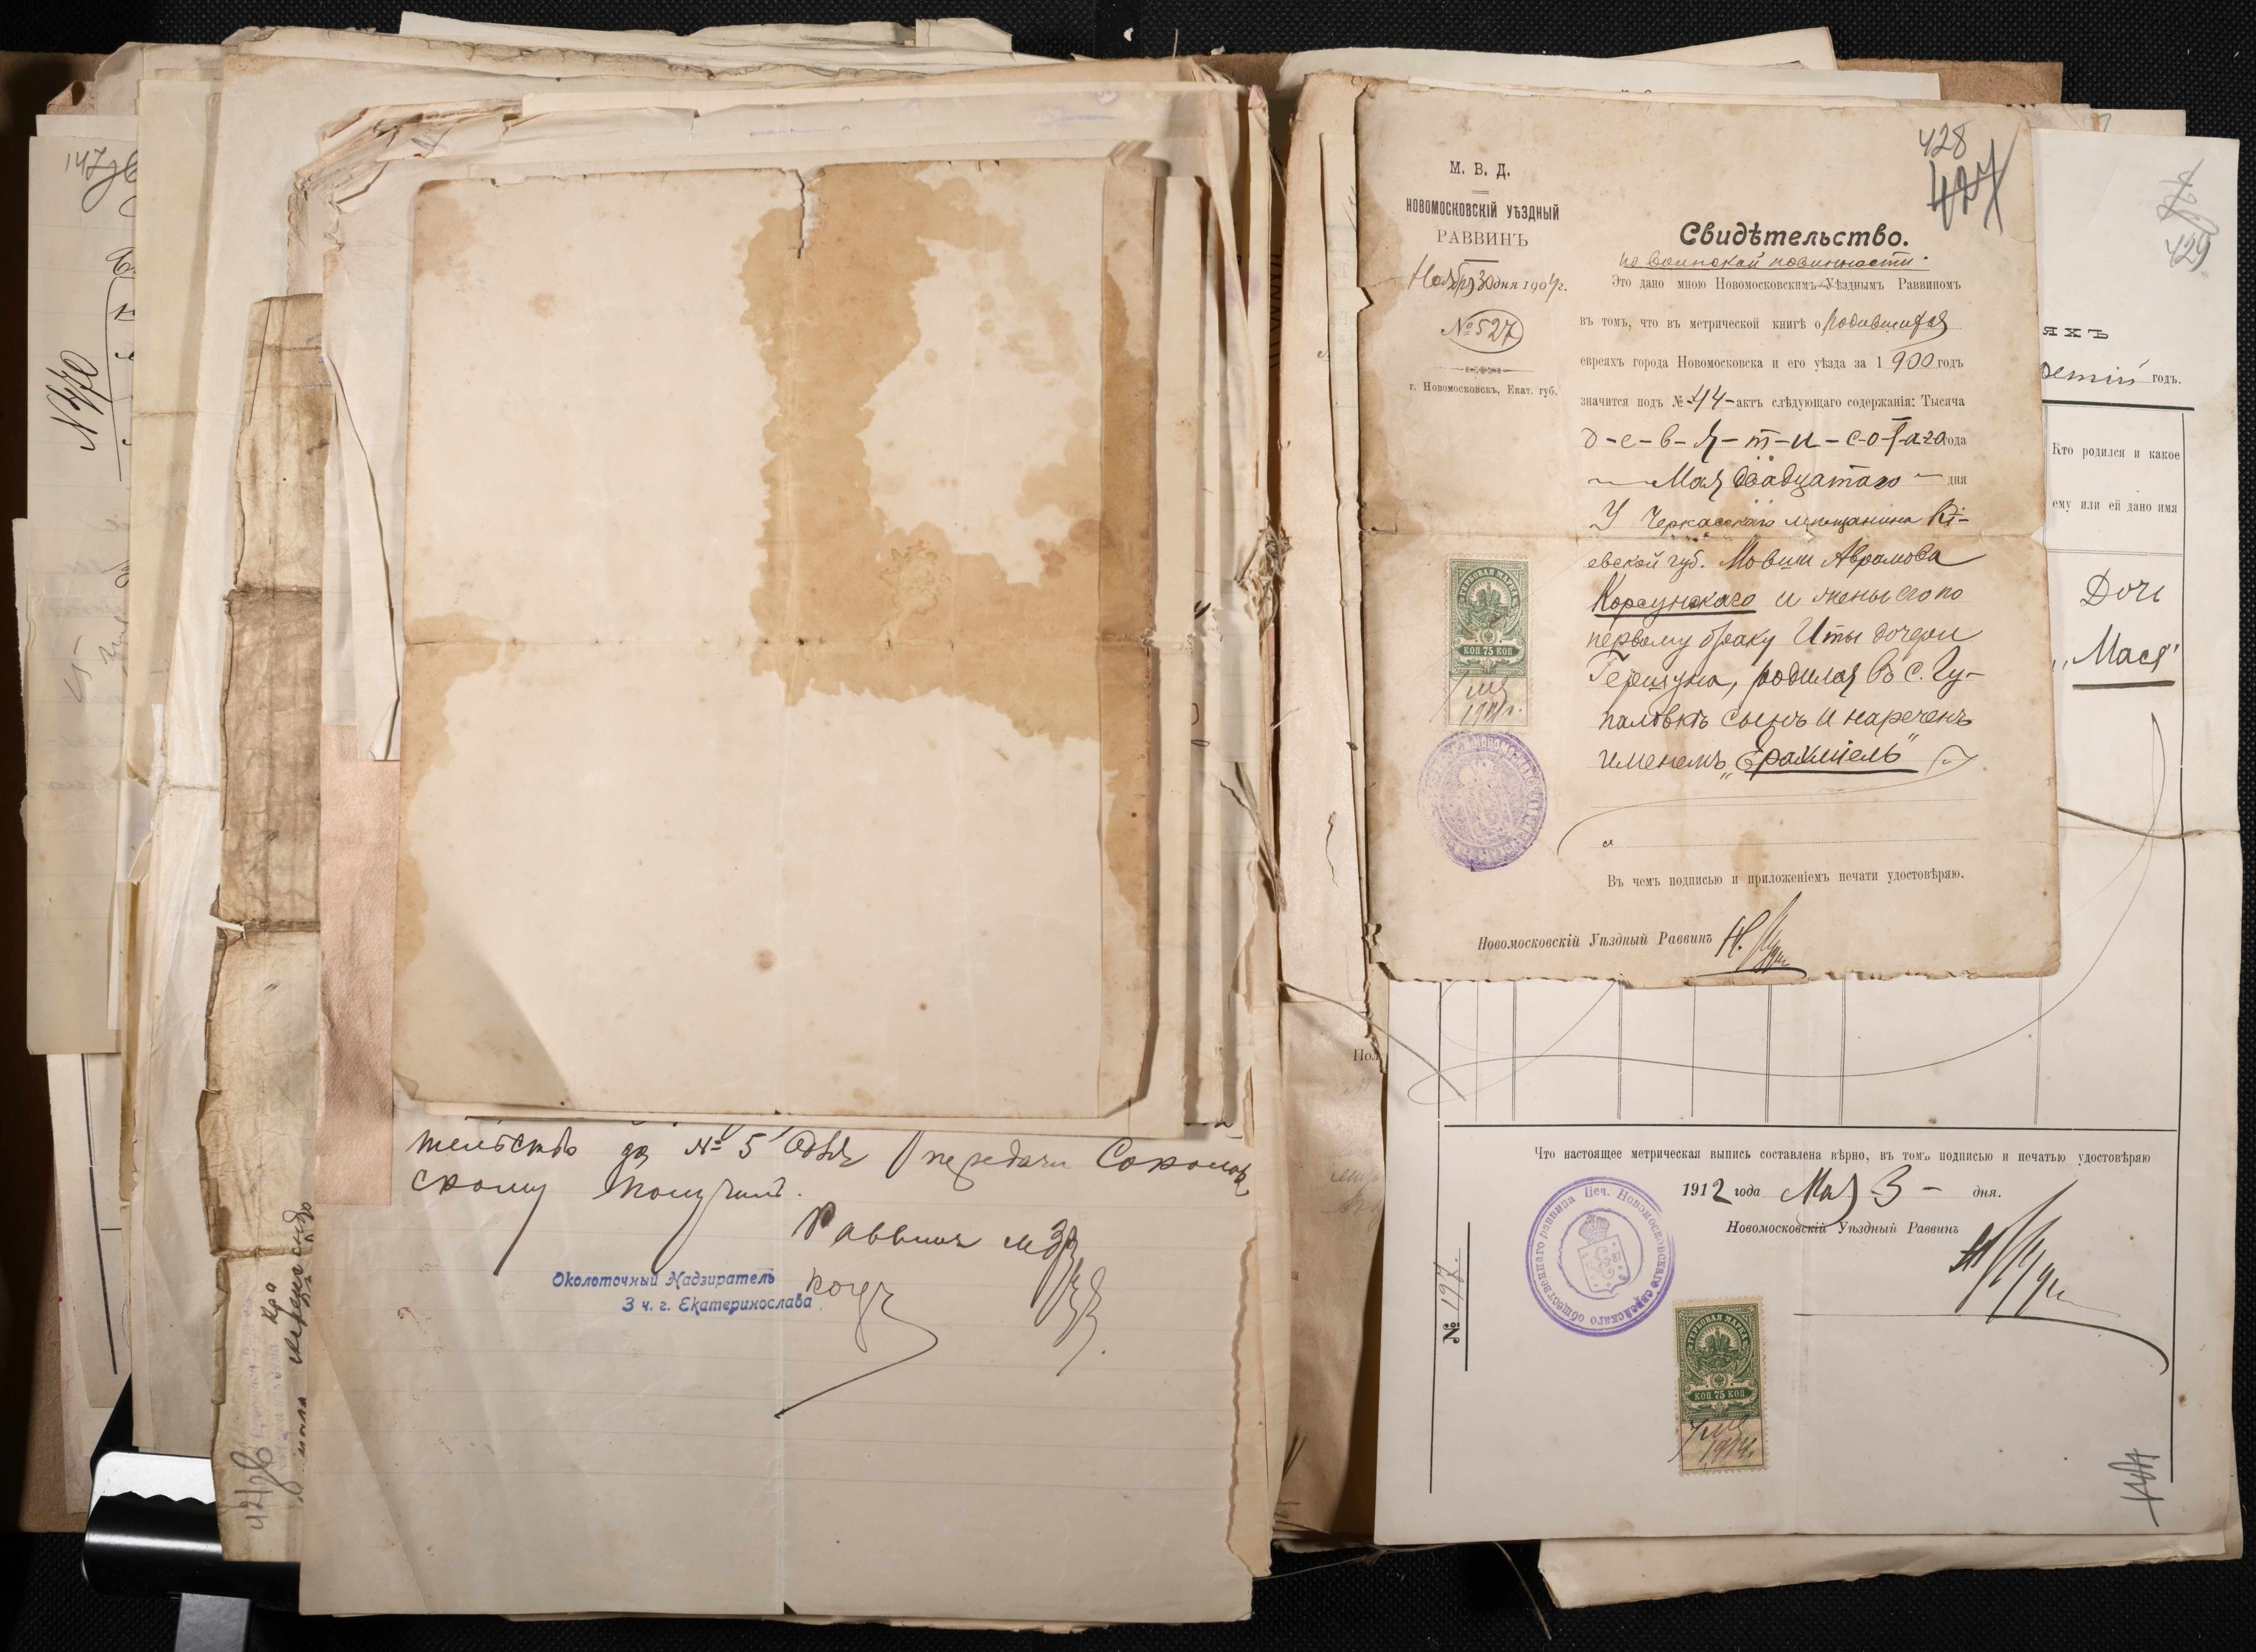 147
№ 470
тельство за № 5
скому получилъ.
Раввинъ
Околоточный Надзиратель
3 ч. г. Екатеринослава
428
427
М. В. Д.
НОВОМОСКОВСКІЙ УѢЗДНЫЙ
РАВВИНЪ
Ноября 30 дня 1904 г.
№ 527
г. Новомосковскъ, Екат. губ.
Свидѣтельство.
по воинской повинности.
Это дано мною Новомосковскимъ Уѣзднымъ Раввиномъ
въ томъ, что въ метрической книгѣ о родившихся
евреяхъ города Новомосковска и его уѣзда за 1900 годъ
значится подъ № 44 актъ слѣдующаго содержанія: Тысяча
д-е-в-я-т-и-с-о-т-а-го года
Мая двадцатаго дня
У Черкасскаго мѣщанина Кі-
евской губ. Мовши Аврамова
Корсунскаго и жены его по
первому браку Иты дочери
Гершуна, родился въ с. Чу-
паловкѣ сынъ и нареченъ
именемъ „Ерахміель"
Въ чемъ подписью и приложеніемъ печати удостовѣряю.
Новомосковскій Уѣздный Раввинъ
ГЕРБОВАЯ МАРКА
КОП 75 КОП
429
яхъ
годъ.
Кто родился и какое
ему или ей дано имя
Дочь
„Мася"
Пол
Что настоящее метрическая выпись составлена вѣрно, въ томъ подписью и печатью удостовѣряю
1912 года Мая 3 дня.
Новомосковскій Уѣздный Раввинъ
Печ. Новомосковскаго еврейскаго общественнаго раввина
№ 197
ГЕРБОВАЯ МАРКА
КОП 75 КОП